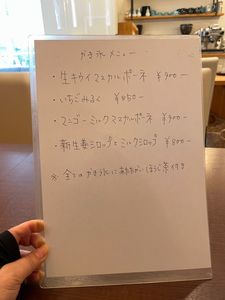 かき氷メニュー
・生キウイマスカルポーネ ¥900-
・いちごみるく ¥850-
・マンゴーミルクマスカルポーネ ¥900-
・新生姜シロップとミルクシロップ ¥800-
※全てのかき氷に あたたかいほうじ茶付き